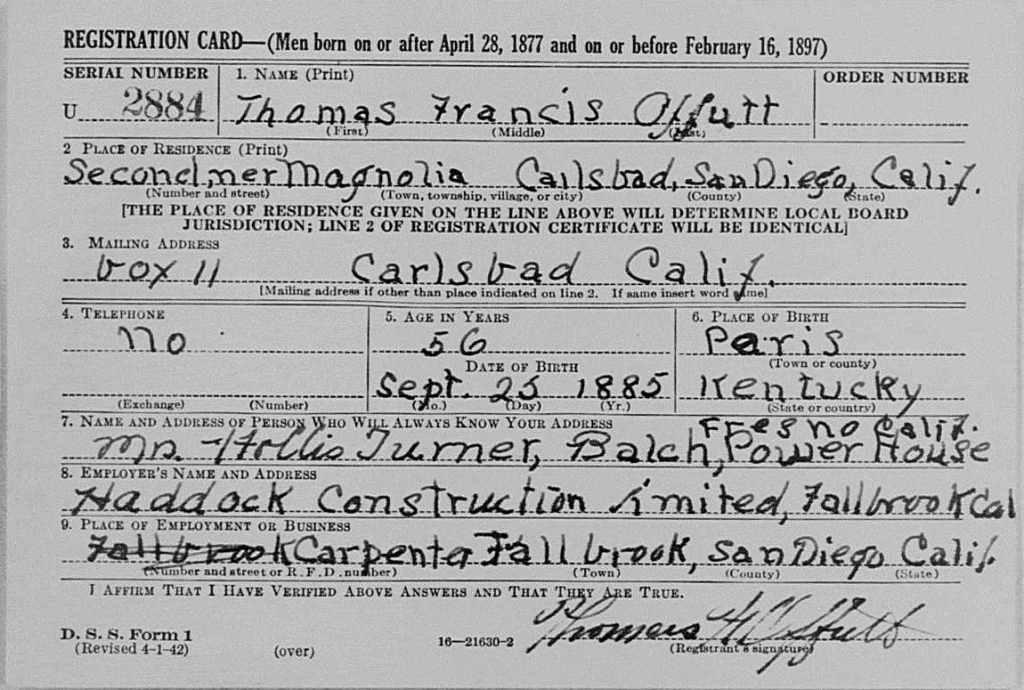 REGISTRATION CARD—(Men born on or after April 28, 1877 and on or before February 16, 1897)
SERIAL NUMBER 1. NAME (Print) ORDER NUMBER
U 2884 Thomas Francis Offutt
(First) (Middle) (Last)
2 PLACE OF RESIDENCE (Print)
Second, ner Magnolia Carlsbad, San Diego, Calif.
(Number and street) (Town, township, village, or city) (County) (State)
[THE PLACE OF RESIDENCE GIVEN ON THE LINE ABOVE WILL DETERMINE LOCAL BOARD
JURISDICTION; LINE 2 OF REGISTRATION CERTIFICATE WILL BE IDENTICAL]
3. MAILING ADDRESS
box 11 Carlsbad Calif.
[Mailing address if other than place indicated on line 2. If same insert word same]
4. TELEPHONE 5. AGE IN YEARS 6. PLACE OF BIRTH
no 56 Paris
DATE OF BIRTH (Town or county)
Sept. 25 1885 Kentucky
(Exchange) (Number) (Mo.) (Day) (Yr.) (State or country)
7. NAME AND ADDRESS OF PERSON WHO WILL ALWAYS KNOW YOUR ADDRESS Fresno Calif.
Mr. Hollis Turner, Balch, Power House
8. EMPLOYER'S NAME AND ADDRESS
Haddock Construction limited, Fallbrook Cal
9. PLACE OF EMPLOYMENT OR BUSINESS
Fallbrook Carpenter Fallbrook, San Diego Calif.
(Number and street or R. F. D. number) (Town) (County) (State)
I AFFIRM THAT I HAVE VERIFIED ABOVE ANSWERS AND THAT THEY ARE TRUE.
Thomas F Offutt
D. S. S. Form 1
(Revised 4-1-42) (over) 16—21630-2 (Registrant's signature)